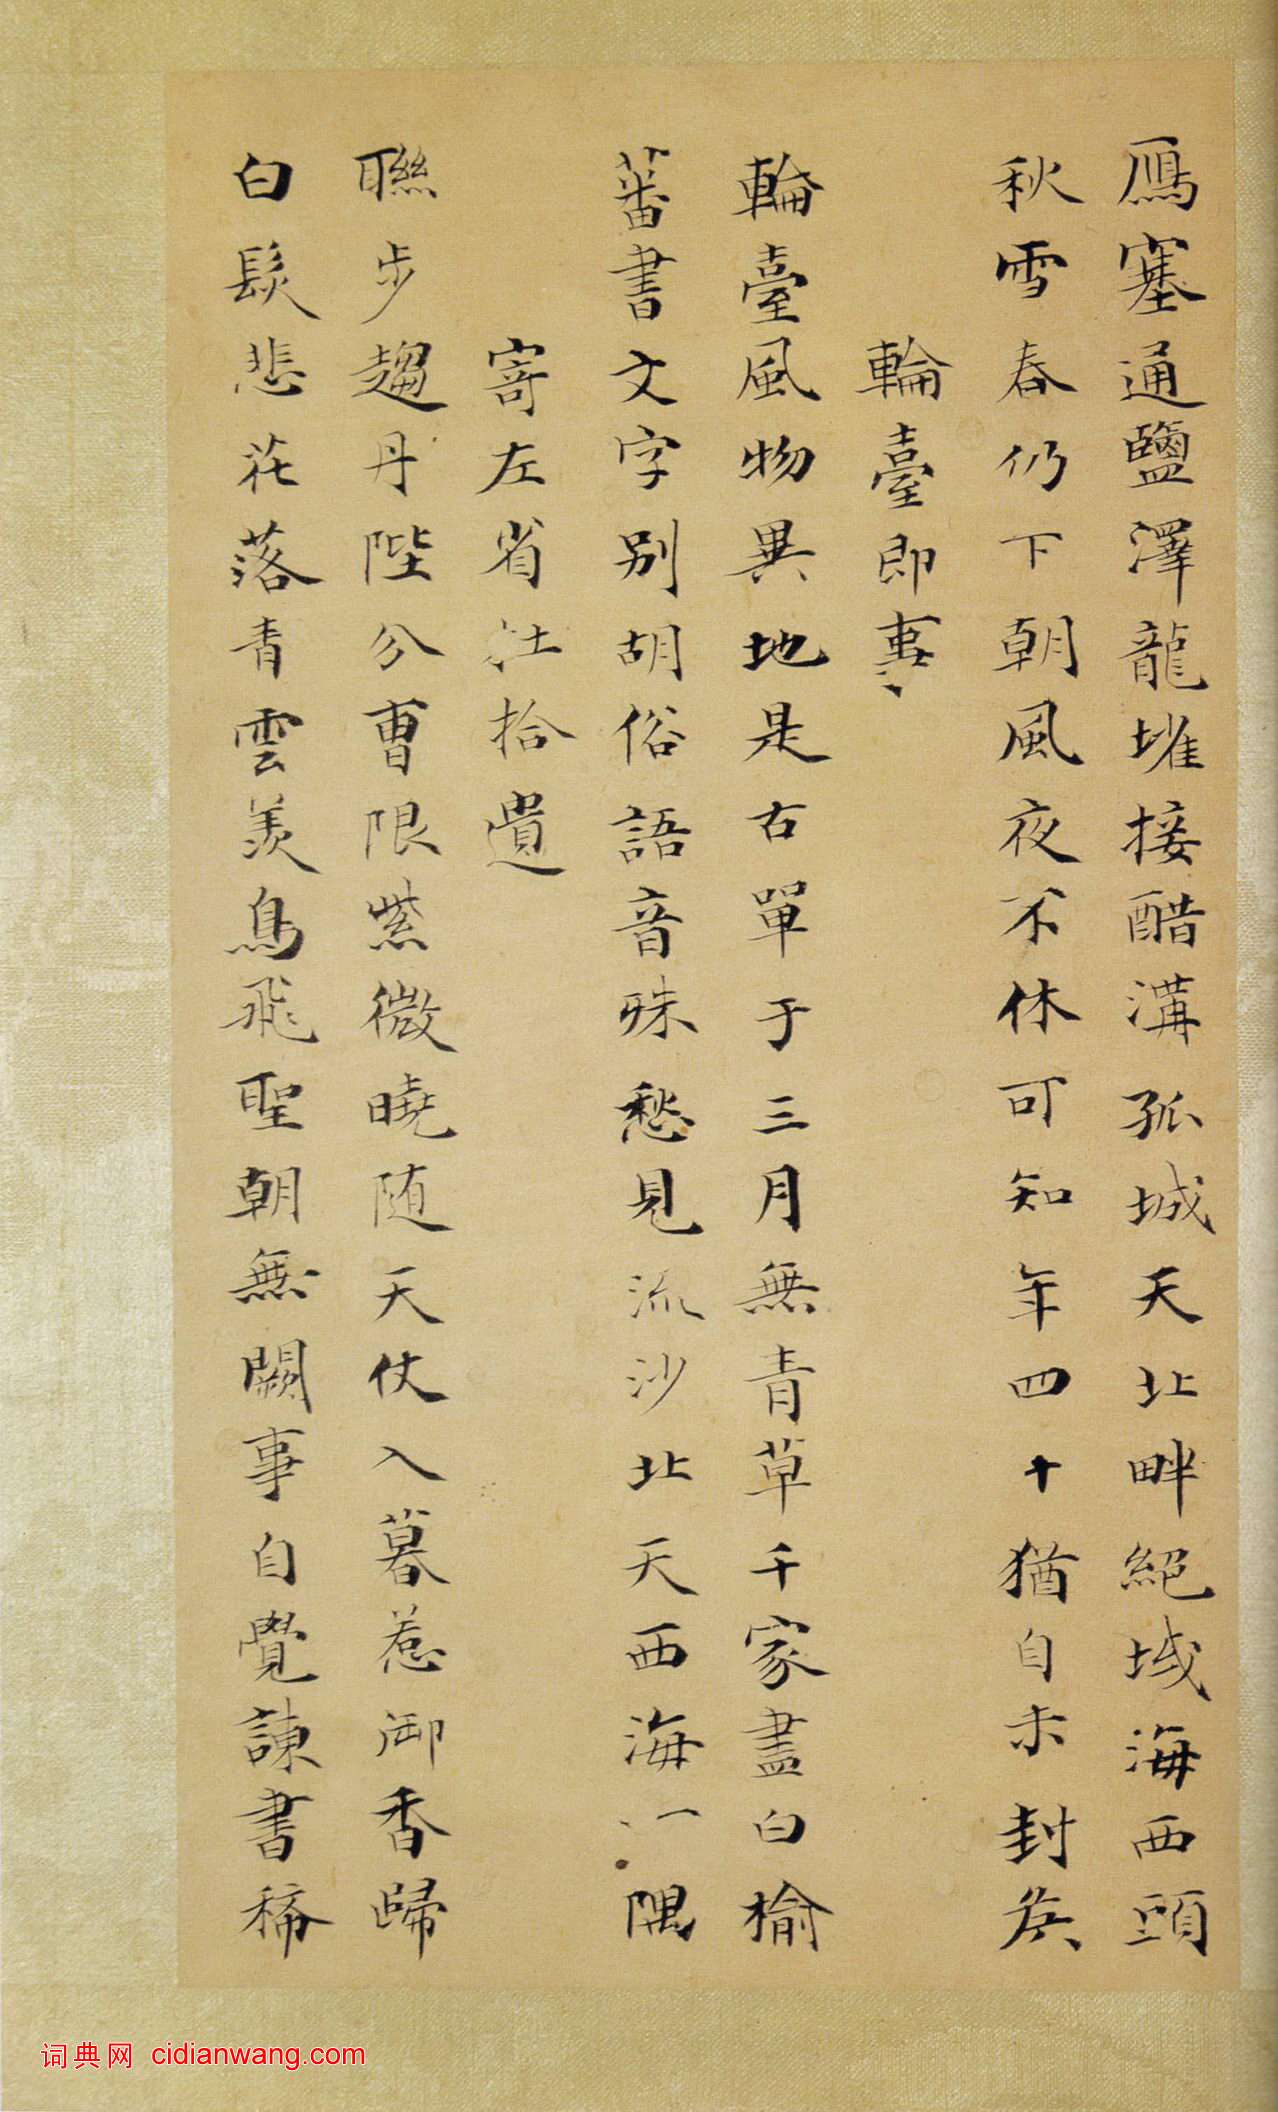 鴈塞通鹽澤龍堆接醋溝孤城天北畔絕域海西頭
秋雪春仍下朝風夜不休可知年四十猶自未封侯
輪臺即事
輪臺風物異地是古單于三月無青草千家盡白榆
蕃書文字別胡俗語音殊愁見流沙北天西海一隅
寄左省杜拾遺
聯步趨丹陛分曹限紫微曉随天仗入暮惹御香歸
白髮悲花落青雲羨鳥飛聖朝無闕事自覺諫書稀
词典网 cidianwang.com